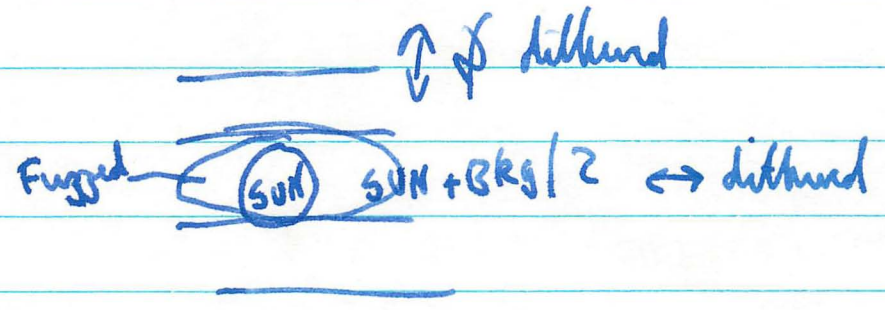 ↕ ϕ dithered
Fuzzed SUN SUN + Bkg/2 ↔ dithered